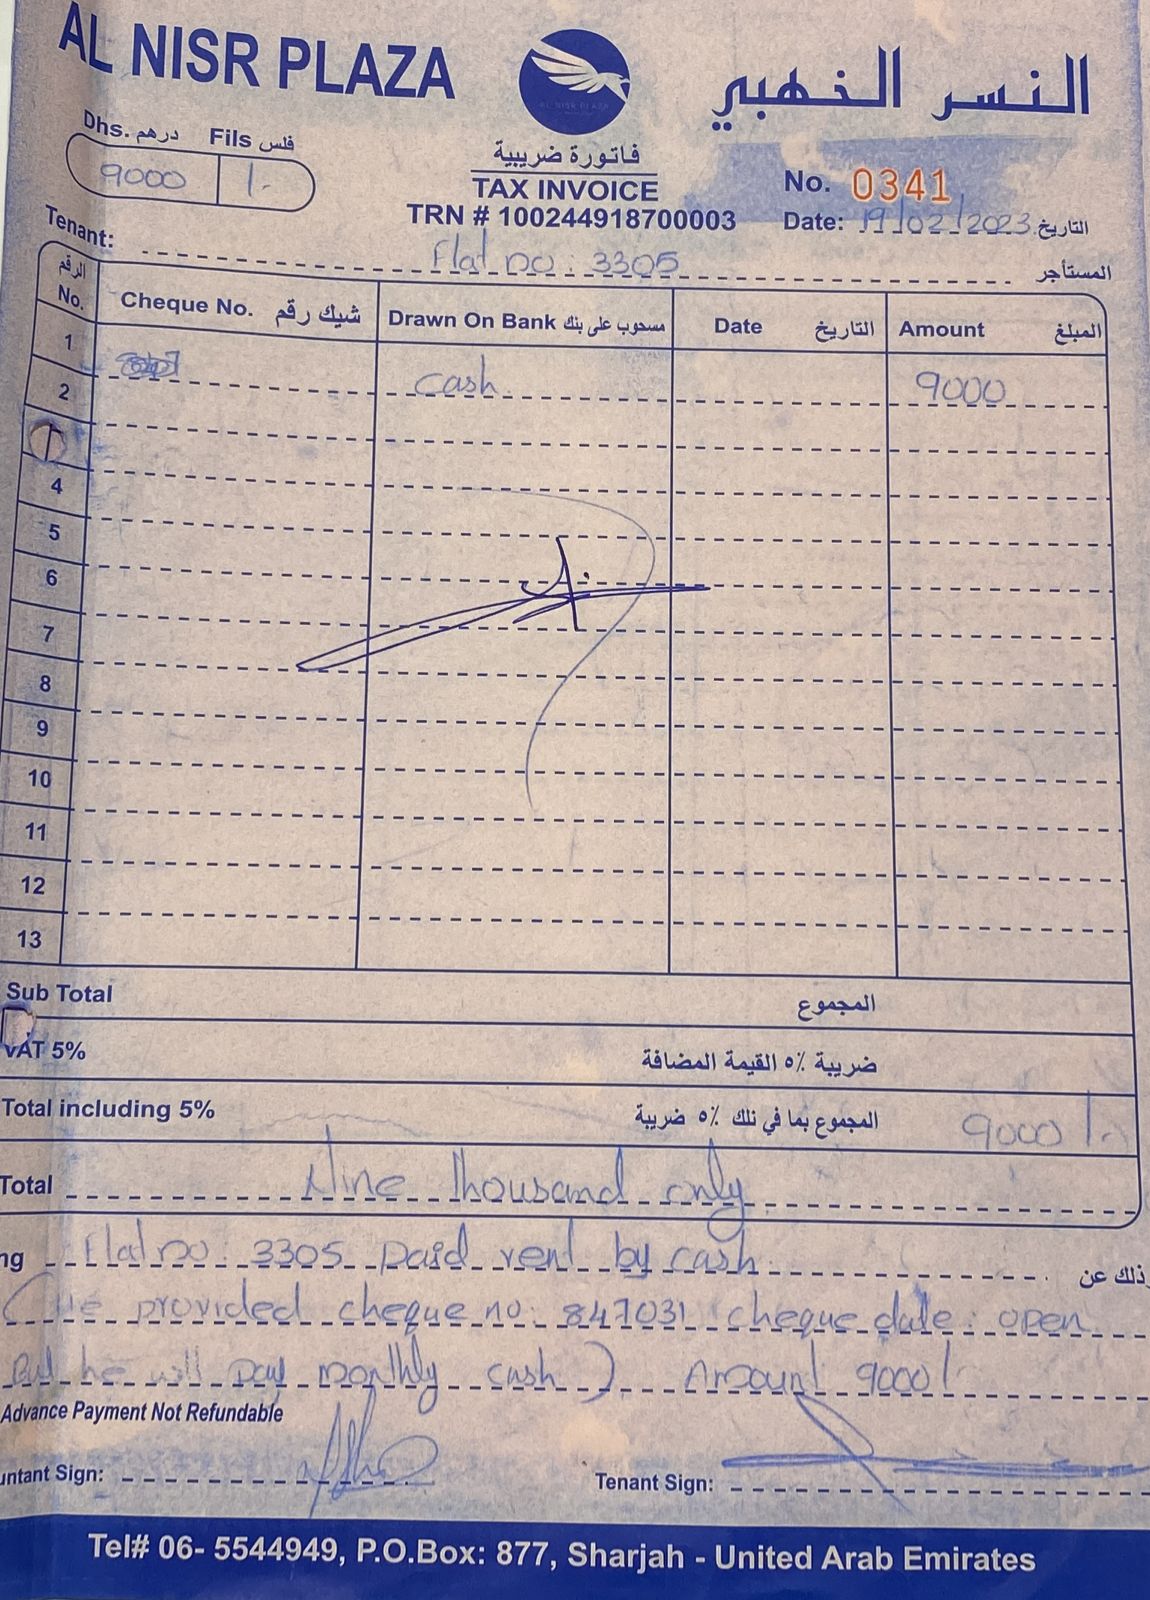 AL NISR PLAZA
النسر الذهبي
AL NISR PLAZA
Dhs. درهم Fils فلس
9000 /-
فاتورة ضريبية
TAX INVOICE
TRN # 100244918700003
No. 0341
Date: 19/02/2023 التاريخ
Tenant: Flat no: 3305 المستأجر
الرقم No. Cheque No. شيك رقم Drawn On Bank مسحوب على بنك Date التاريخ Amount المبلغ
1
2 cash 9000
4
5
6
7
8
9
10
11
12
13
Sub Total المجموع
VAT 5% ضريبة ٥٪ القيمة المضافة
Total including 5% المجموع بما في ذلك ٥٪ ضريبة 9000/-
Total Nine thousand only
ng Flat no: 3305 paid rent by cash وذلك عن
provided cheque no: 847031 cheque date: open
but he will pay monthly cash) Amount 9000/-
Advance Payment Not Refundable
untant Sign: Tenant Sign:
Tel# 06- 5544949, P.O.Box: 877, Sharjah - United Arab Emirates